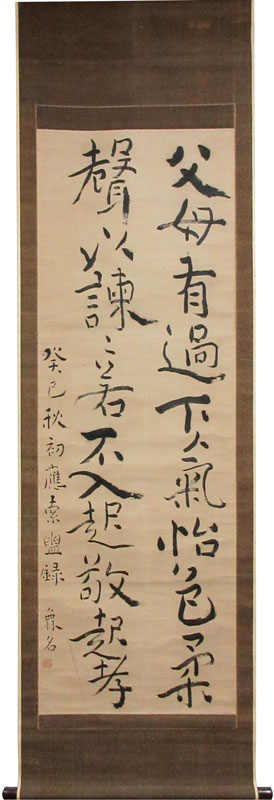 父母有過下氣怡色柔
聲以諫〻若不入起敬起孝
癸巳秋初應索盥録